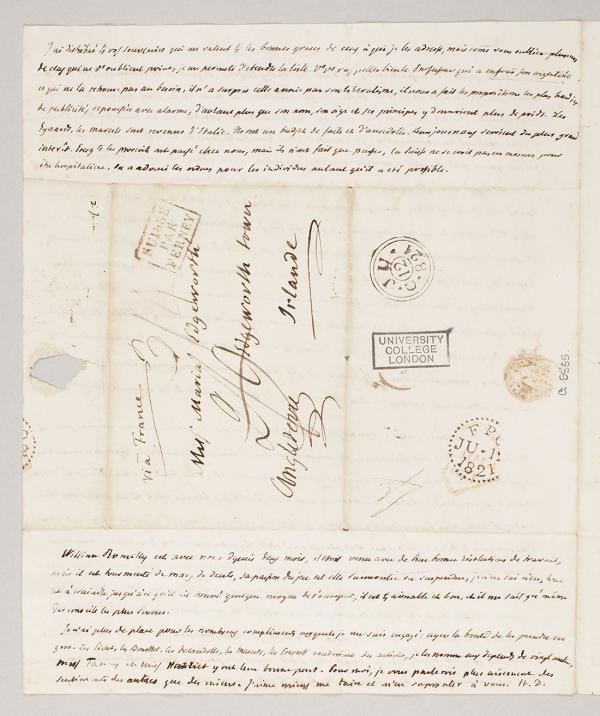 J'ai distribué to vos souvenirs qui me valent to les bonnes graces de ceux à qui je les adresse, mais comme vous oubliez plusieurs
de ceux qui ne vs oublient point, je me permets d'étendre la liste.
ce qui ne la retour pas au besoin, il m'a surpris cette année par son libéralisme, il nous a fait les propositions les plus hardies
de publicité, repoussées avec alarme, d'autant plus que son nom, son âge et ses principes y donnoient plus de poids. Les
Eynards, les marcets sont revenus d'Italie. Ils ont un budjet de faits et d'anecdotes. Leurs journaux seroient du plus grand
intérêt. Presq to les proscrits ont passé chez nous, mais ils n'ont fait que passer, la Suisse ne se croit pas en mesure pour
être hospitalière. On a adouci les ordres pour les individus autant qu'il a été possible.
SUISSE
PAR
FERNEY
via France
Miss Maria Edgeworth
Edgeworth town
Irlande
Angleterre
J. 11
12
C. 821
UNIVERSITY
COLLEGE
LONDON
FPO
JU. 1
1821
William Romilly est avec nous depuis deux mois, il étoit venu avec de bien bonnes résolutions de travail,
mais il est tourmenté de maux de dents, sa passion du jeu est elle surmontée ou suspendue, je n'en sais rien,
il est si aimable et bon, et il me sait gré même
des conseils les plus sévères.
Je n'ai plus de place pour les nombreux complimens auxquels je me suis engagé. ayez la bonté de les prendre en
gros. Les Pictets, les Boullets, les decandolles, les marcets, les Prevost voudroient des articles, je les nomme aux dépends de vingt autres,
miss Fanny et miss Harriet y ont leur bonne part. Pour moi, je vous parlerois plus aisément des
sentimens des autres que des miens. J'aime mieux me taire et m'en rapporter à vous. H. D.